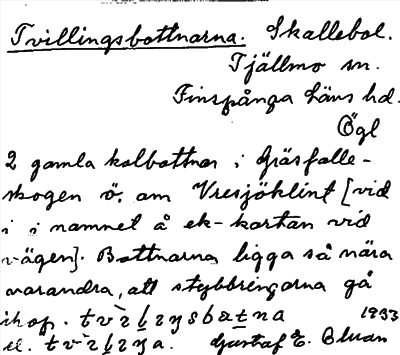 Tvillingsbottnarna. Skallebol.
Tjällmo sn.
Finspånga läns hd.
Ögl
2 gamla kolbottnar i Gräsfalle-
skogen ö. om Vresjöklint [vid
i i namnet å ek-kartan vid
vägen]. Bottnarna ligga så nära
varandra, att stybbringarna gå
ihop. 1933
el. Gustaf E.